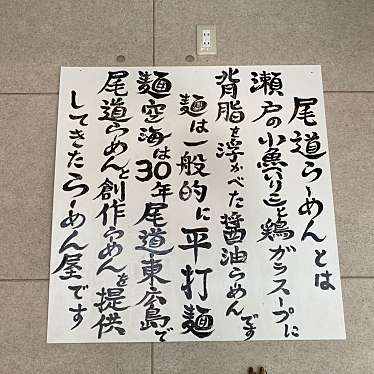 尾道らーめんとは
瀬戸の小魚いりこと鶏ガラスープに
背脂を浮かべた醤油らーめんです
麺は一般的に平打麺
麺空海は30年尾道東広島で
尾道らーめんと創作らーめんを提供
してきたらーめん屋です